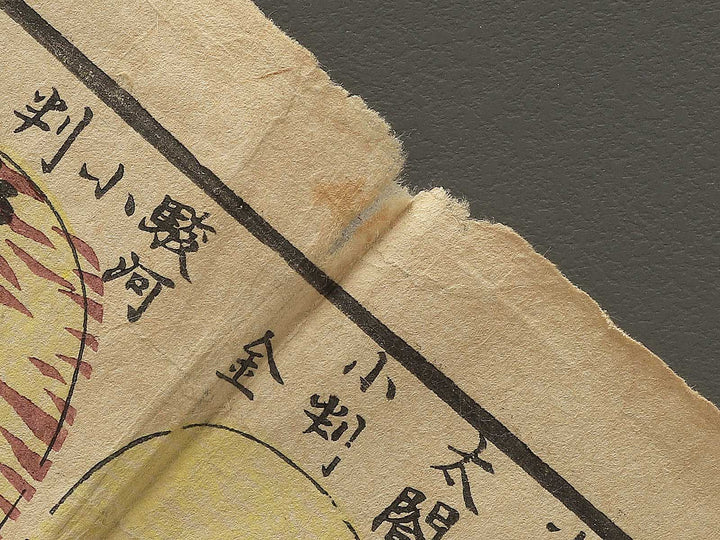 太閤
小判
金
駿河
小
判